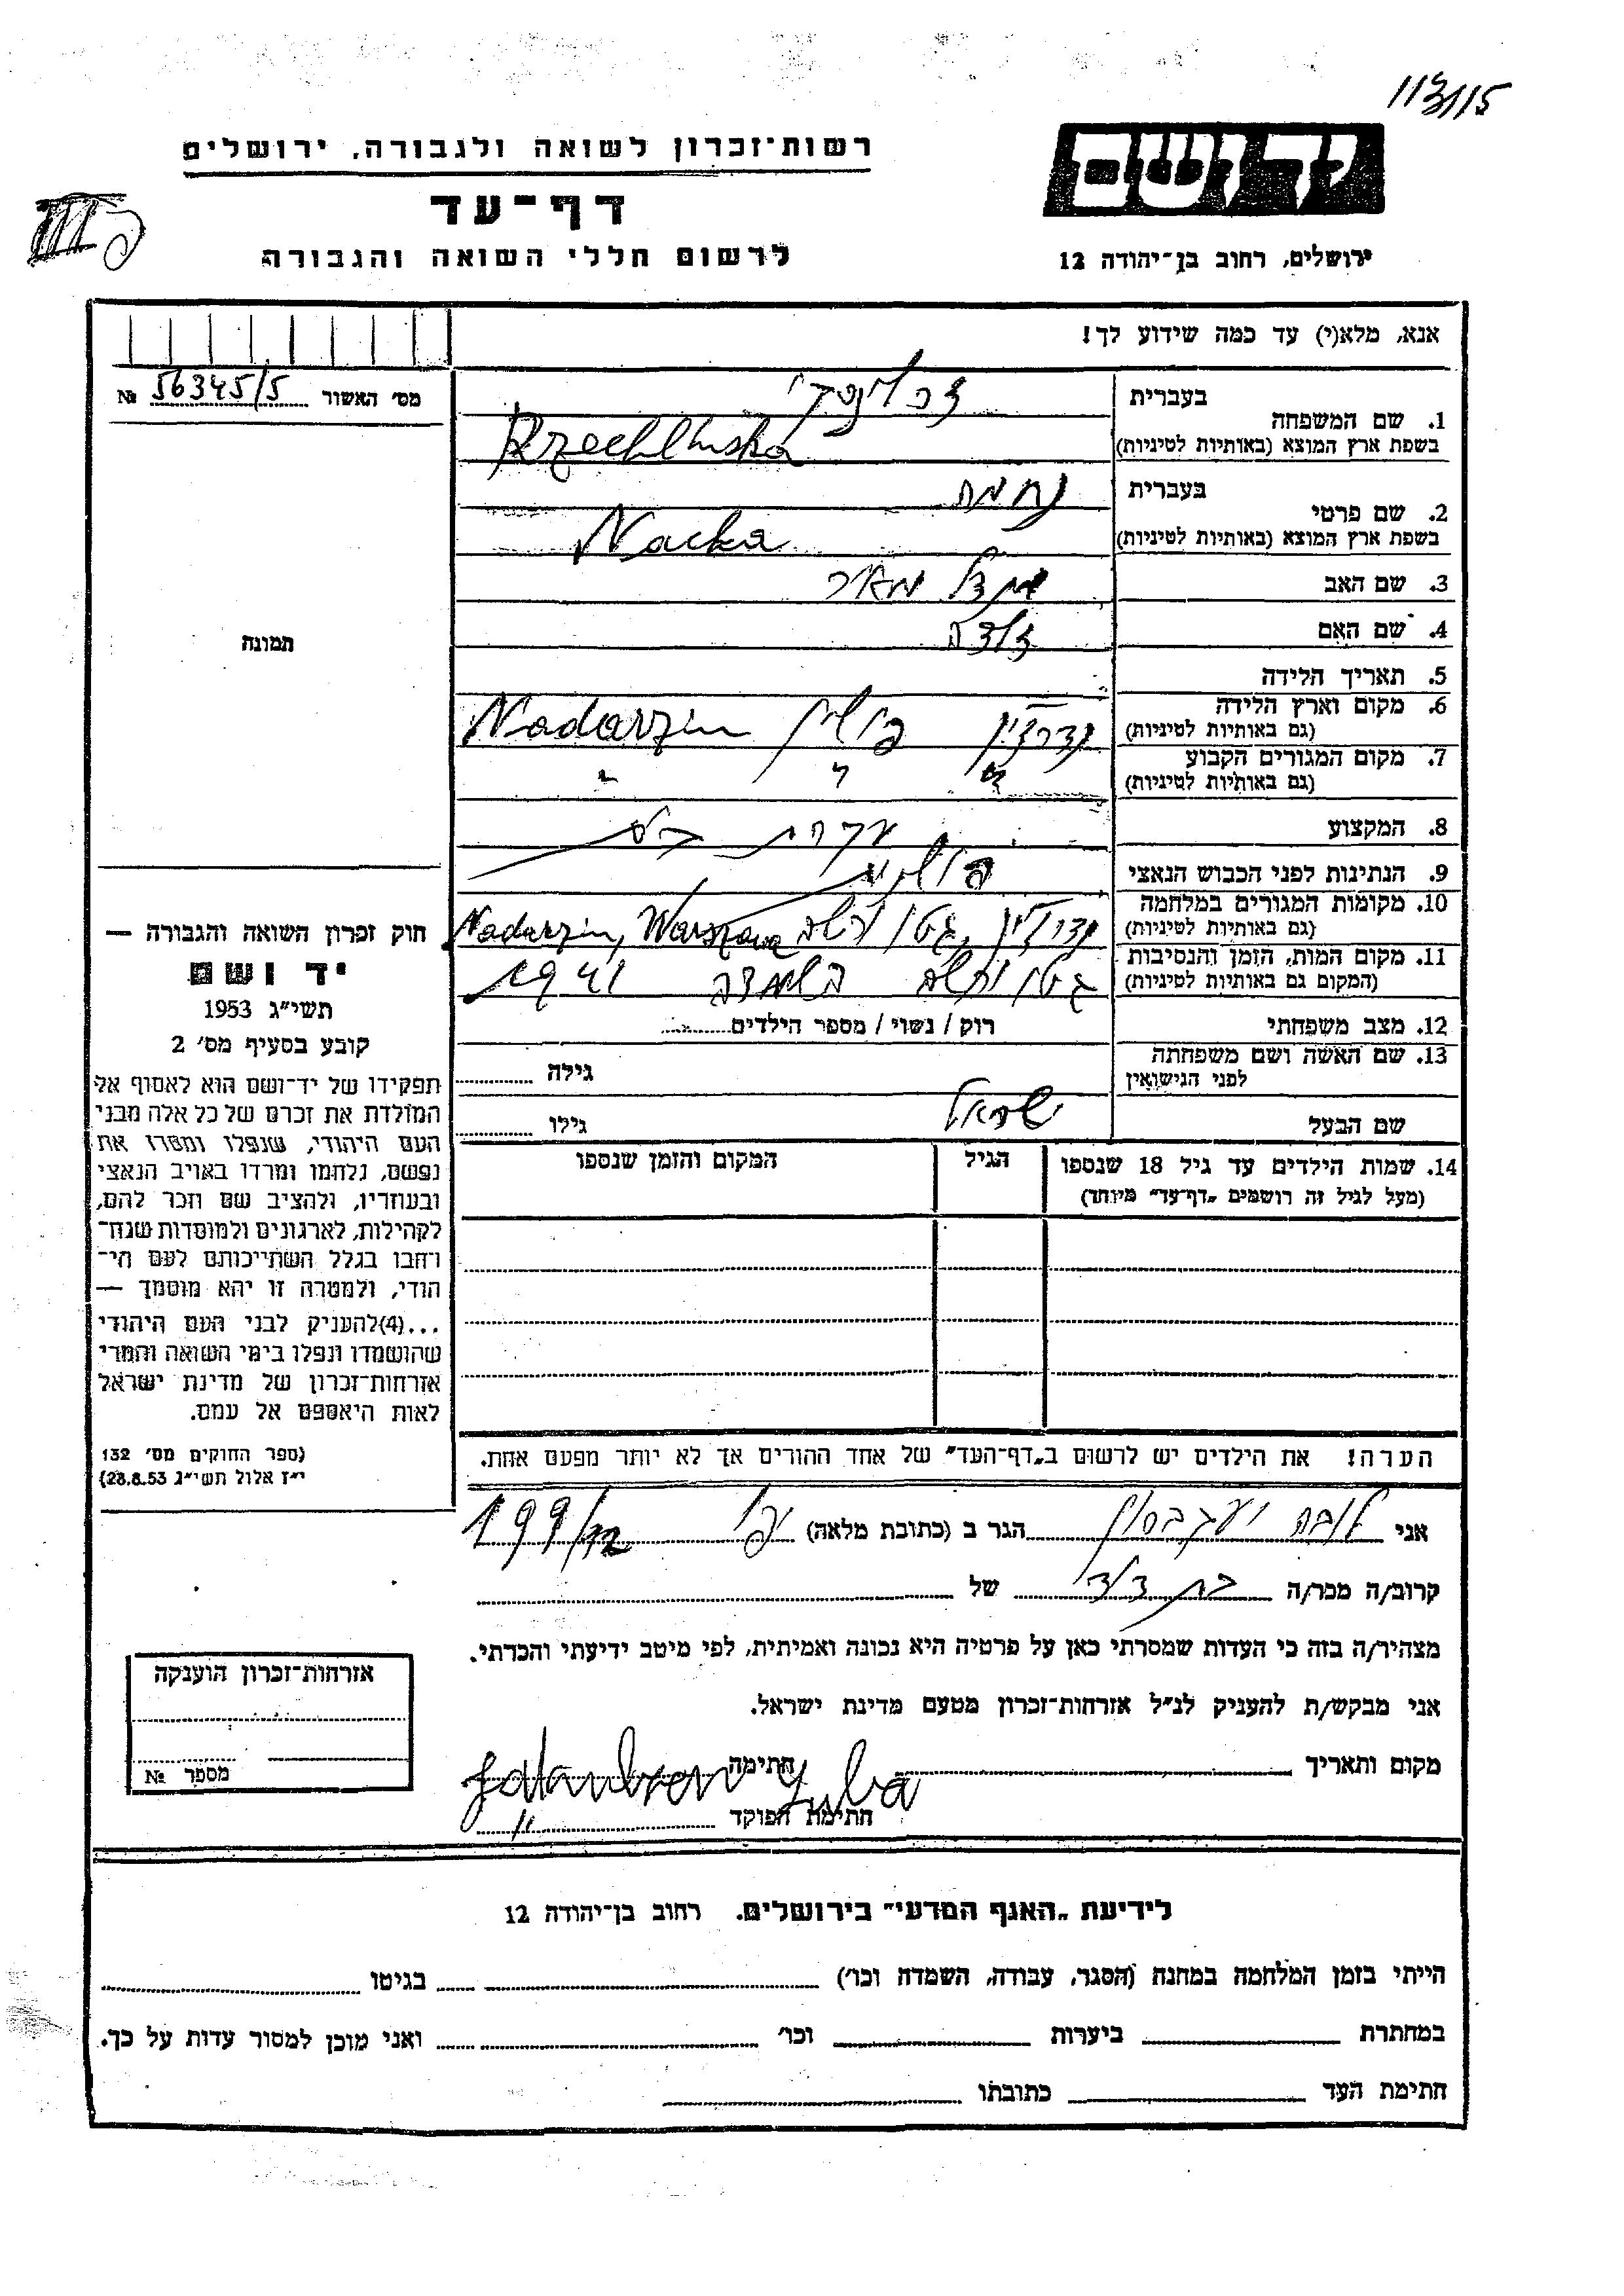 רשות־זכרון לשואה ולגבורה, ירושלים
יד ושם
דף־עד
לרשום חללי השואה והגבורה
ירושלים, רחוב בן־יהודה 12
אנא, מלא(י) עד כמה שידוע לך!
מס׳ האשור 56345/5 №
1. שם המשפחה
בעברית
בשפת ארץ המוצא (באותיות לטיניות)
2. שם פרטי
בעברית נחמה
בשפת ארץ המוצא (באותיות לטיניות) Nacka
3. שם האב מאיר
4. שם האם
5. תאריך הלידה
6. מקום וארץ הלידה נדרזין פולין Nadarzin
(גם באותיות לטיניות)
7. מקום המגורים הקבוע
(גם באותיות לטיניות)
8. המקצוע עקרת בית
9. הנתינות לפני הכבוש הנאצי פולנית
10. מקומות המגורים במלחמה נדרזין, גטו ורשה Nadarzin, Warszawa
(גם באותיות לטיניות)
11. מקום המות, הזמן והנסיבות גטו ורשה בהשמדה 1941
(המקום גם באותיות לטיניות)
12. מצב משפחתי רוק / נשוי / מספר הילדים
13. שם האשה ושם משפחתה
לפני הנישואין גילה
שם הבעל ישראל גילו
14. שמות הילדים עד גיל 18 שנספו הגיל המקום והזמן שנספו
(מעל לגיל זה רושמים „דף־עד" מיוחד)
הערה! את הילדים יש לרשום ב„דף־העד" של אחד ההורים אך לא יותר מפעם אחת.
תמונה
חוק זכרון השואה והגבורה —
יד ושם
תשי״ג 1953
קובע בסעיף מס׳ 2
תפקידו של יד־ושם הוא לאסוף אל
המולדת את זכרם של כל אלה מבני
העם היהודי, שנפלו ומסרו את
נפשם, נלחמו ומרדו באויב הנאצי
ובעוזריו, ולהציב שם וזכר להם,
לקהילות, לארגונים ולמוסדות שנח־
רבו בגלל השתייכותם לעם הי־
הודי, ולמטרה זו יהא מוסמך —
...(4)להעניק לבני העם היהודי
שהושמדו ונפלו בימי השואה והמרי
אזרחות־זכרון של מדינת ישראל
לאות היאספם אל עמם.
(ספר החוקים מס׳ 132
י״ז אלול תשי״ג 28.8.53)
אני הגר ב (כתובת מלאה) יפו
קרוב/ה מכר/ה בת דוד של
מצהיר/ה בזה כי העדות שמסרתי כאן על פרטיה היא נכונה ואמיתית, לפי מיטב ידיעתי והכרתי.
אני מבקש/ת להעניק לנ״ל אזרחות־זכרון מטעם מדינת ישראל.
מקום ותאריך חתימה Luba
חתימת הפוקד
אזרחות־זכרון הוענקה
מספר №
לידיעת „האגף המדעי" בירושלים. רחוב בן־יהודה 12
הייתי בזמן המלחמה במחנה (הסגר, עבודה, השמדה וכו׳) בגיטו
במחתרת ביערות וכו׳ ואני מוכן למסור עדות על כך.
חתימת העד כתובתו